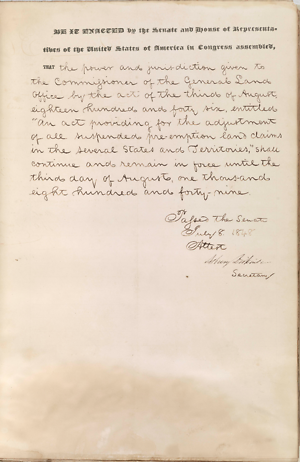 BE IT ENACTED by the Senate and House of Representa-
tives of the United States of America in Congress assembled,
THAT the power and jurisdiction given to
the Commissioner of the General Land
Office by the act of the third of August,
eighteen hundred and forty six, entitled
"An act providing for the adjustment
of all suspended pre-emption land claims
in the several States and Territories," shall
continue and remain in force until the
third day of August, one thousand
eight hundred and forty-nine.
Passed the Senate
July 8 1848
Attest
Secretary